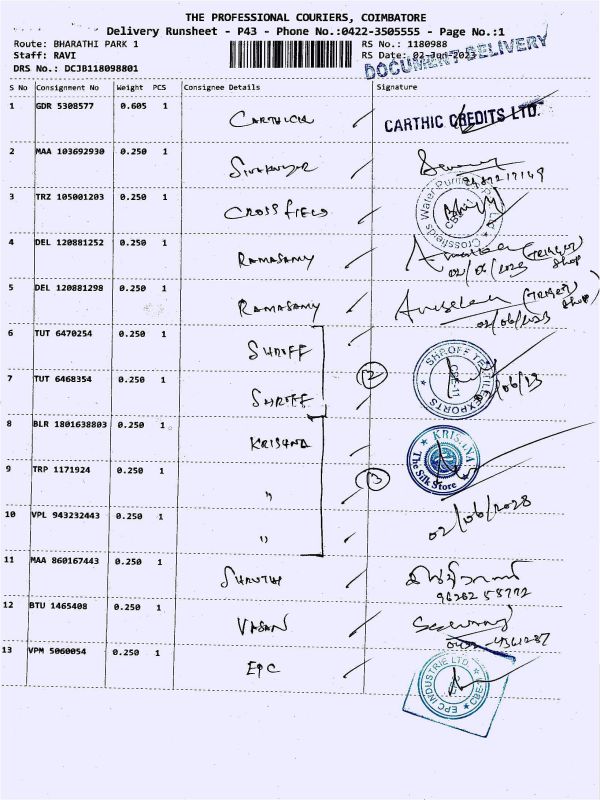 THE PROFESSIONAL COURIERS, COIMBATORE
Delivery Runsheet - P43 - Phone No.:0422-3505555 - Page No.:1
Route: BHARATHI PARK 1
RS No.: 1180988
Staff: RAVI
RS Date: 02-Jun-2023
DRS No.: DCJB118098801
DOCUMENT DELIVERY
S No Consignment No Weight PCS Consignee Details Signature
1 GDR 5308577 0.605 1 CARTHICK CARTHIC CREDITS LTD.
2 MAA 103692930 0.250 1
3 TRZ 105001203 0.250 1 CROSSFIELD
4 DEL 120881252 0.250 1 RAMASAMY 02/06/2023 (TRIGGER Shop
5 DEL 120881298 0.250 1 RAMASAMY (TRIGGER Shop) 02/06/2023
6 TUT 6470254 0.250 1 SHROFF
SHROFF TEXTILE EXPORTS
7 TUT 6468354 0.250 1 SHROFF 2
8 BLR 1801638803 0.250 1 KRISHNA
KRISHNA
The Silk Store
9 TRP 1171924 0.250 1 " 3
10 VPL 943232443 0.250 1 " 02/06/2023
11 MAA 860167443 0.250 1 SHRUTHI
12 BTU 1465408 0.250 1 VASAN
13 VPM 5060054 0.250 1 EPC
EPC INDUSTRIE LTD.